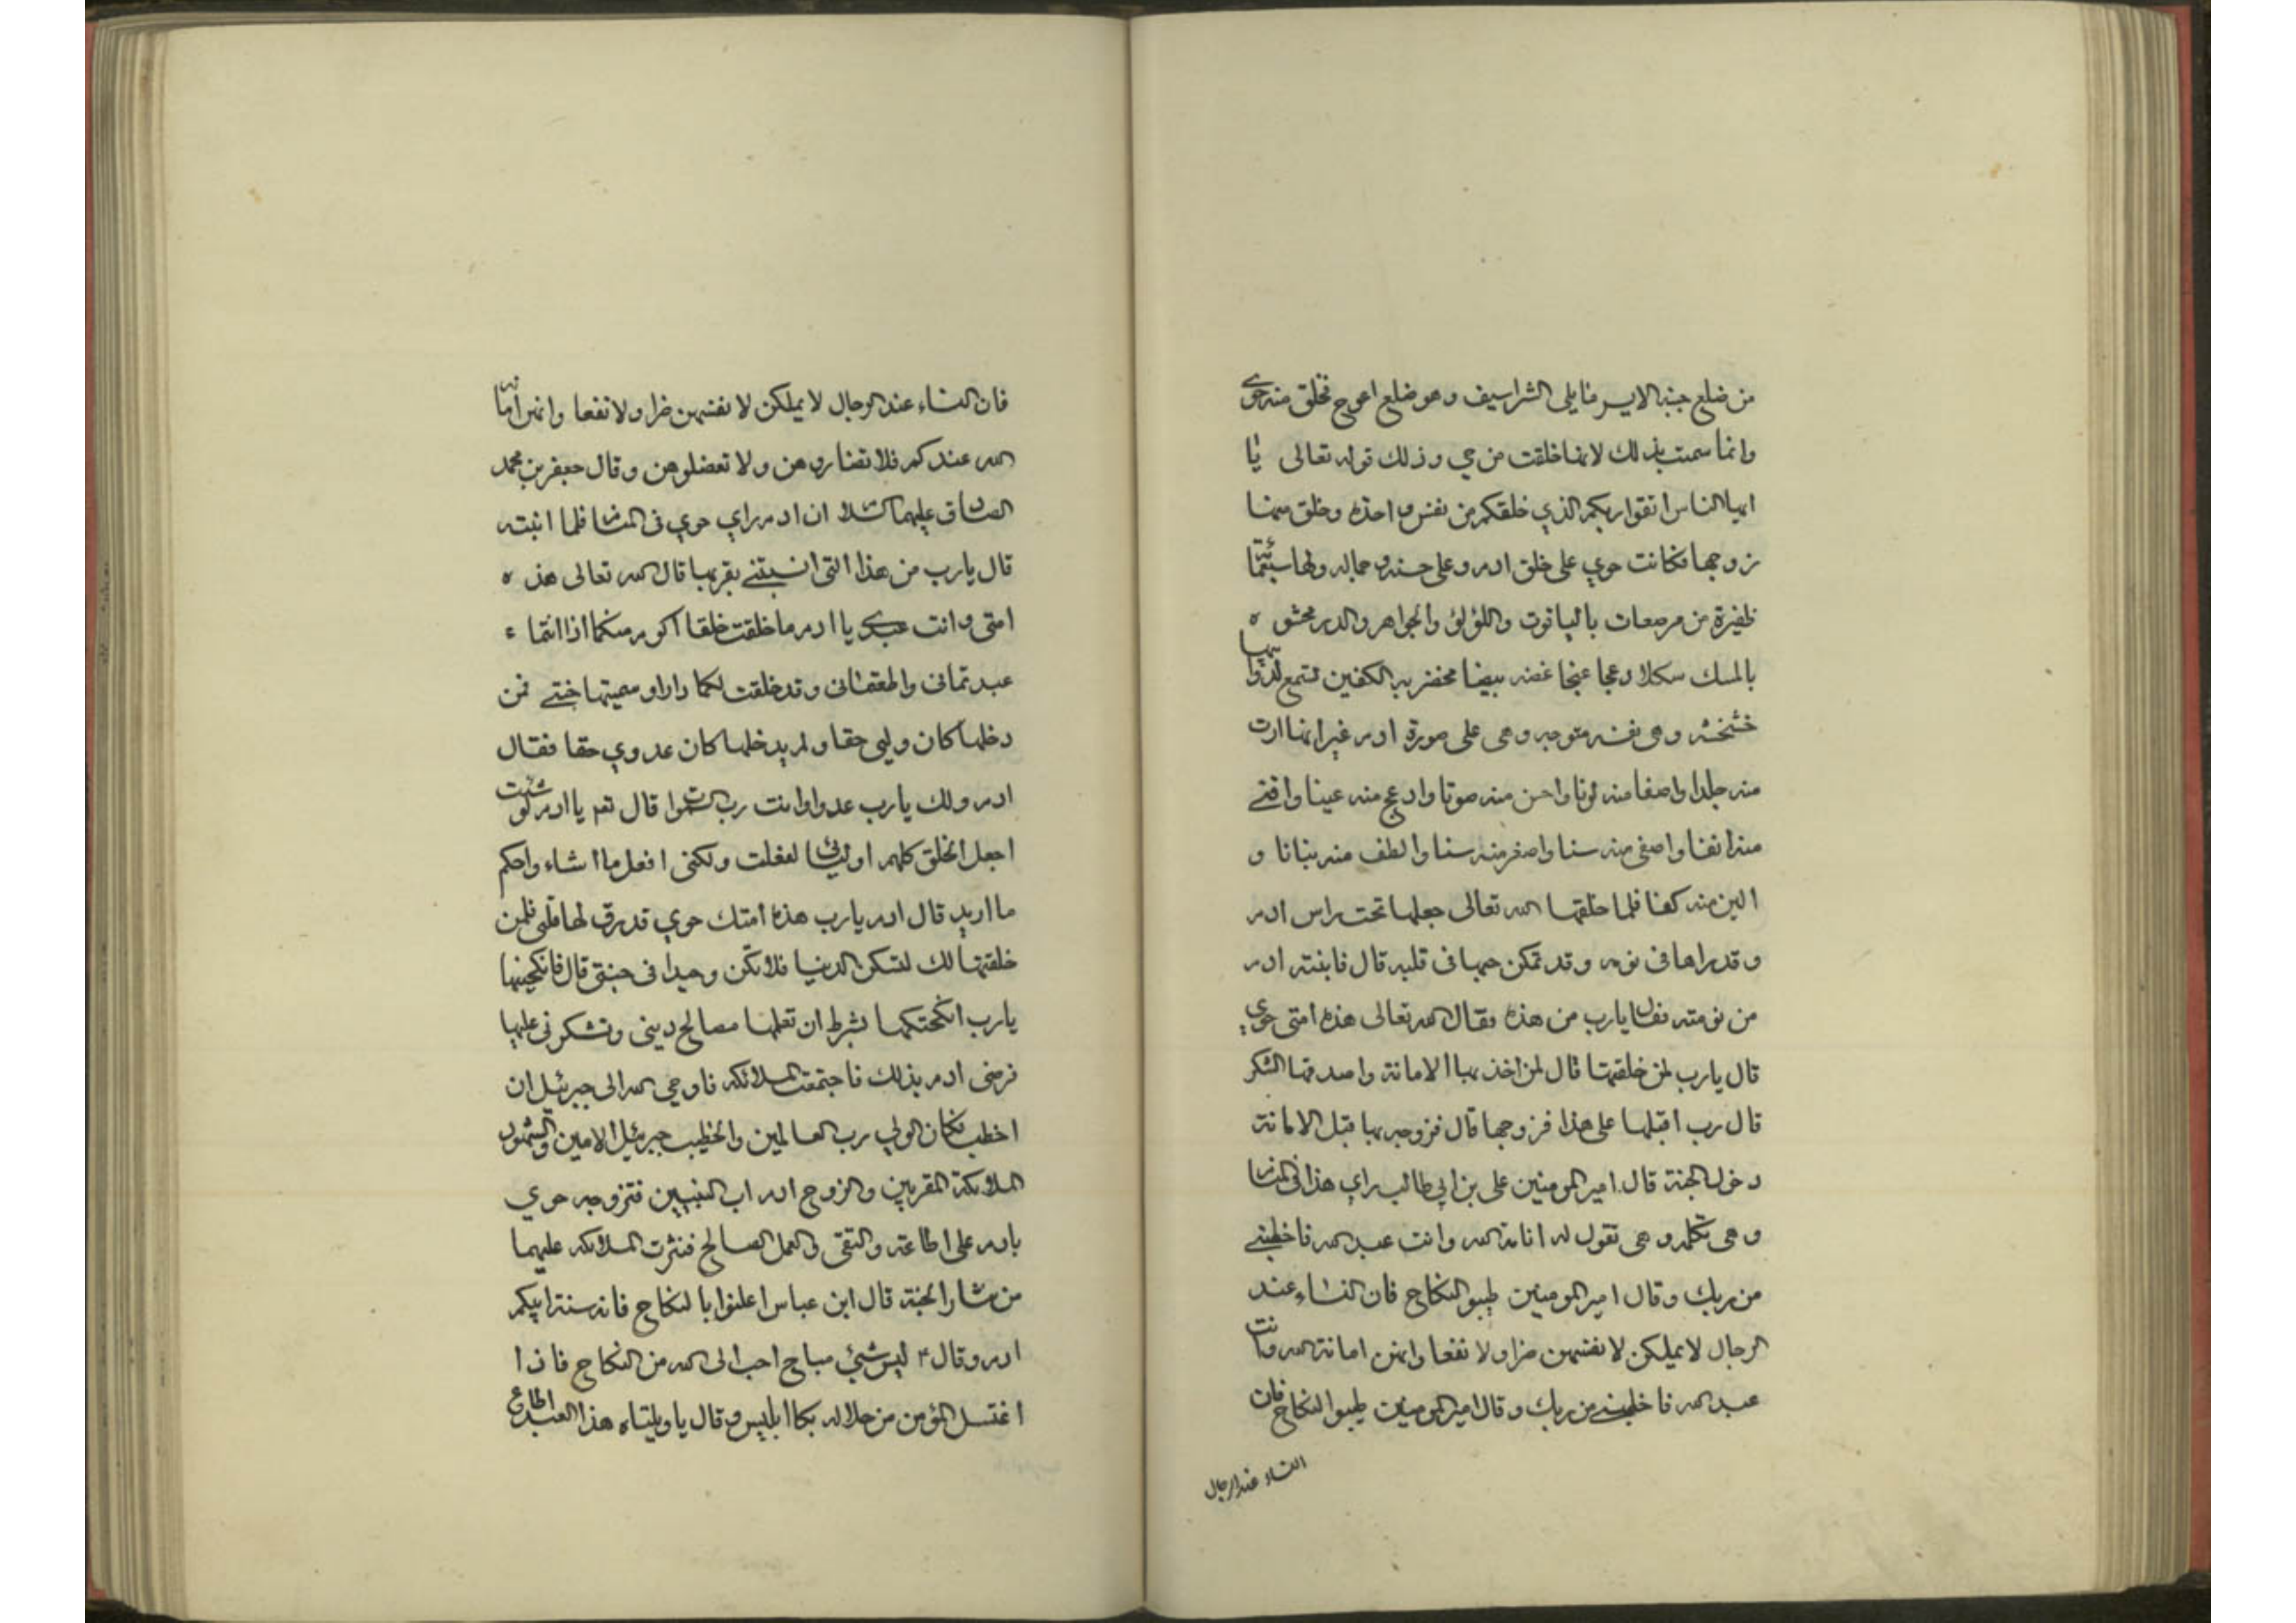 من ضلع جنبه الايسر مما يلى الشراسيف وهو ضلع اعوج فخلق منه حوى
وانما سميت بذلك لانها خلقت من حي وذلك قوله تعالى يا
ايها الناس اتقوا ربكم الذي خلقكم من نفس واحدة وخلق منها
زوجها فكانت حوي على خلق ادم وعلى حسنه وجماله ولها سبعمائة
ظفيرة من مرصعات بالياقوت واللؤلؤ والجواهر والدر محشوه
بالمسك سكلا دعجا غنجا غضه بيضا مخضربه الكفين تسمع لذوايبها
خشخشه وهى نفسه متوجه وهى على صورة ادم غير انها ارق
منه جلدا واصفا منه لونا واحسن منه صوتا وادعج منه عينا واقنى
منه انفا واصفى منه سنا واصغر منه سنا والطف منه بنانا و
الين منه كفا فلما خلقها الله تعالى جعلها تحت راس ادم
وقد راها فى نومه وقد تمكن حبها فى قلبه قال فانبته ادم
من نومته فقال يارب من هذه فقال الله تعالى هذه امتى حوي
قال يارب لمن خلقتها قال لمن اخذ بها الامانة واصدقها الشكر
قال رب اقبلها على هذا فزوجها قال فزوجه بها قبل الامانة
دخول الجنة قال امير المومنين على بن ابي طالب راي هذا فى المنام
وهى تكلمه وهى تقول له انا امة الله وانت عبد الله فاخطبنى
من ربك وقال امير المومنين طيبو النكاح فان النساء عند
الرجال لا يملكن لانفسهن ضرا ولا نفعا وانهن امانة الله وانت
عبد الله فاخطبنى من ربك وقال امير المومنين طيبوا النكاح فان
النساء عند الرجال
فان النساء عند الرجال لا يملكن لانفسهن ضرا ولا نفعا وانهن امانة
الله عندكم فلا تضاروهن ولا تعضلوهن وقال جعفر بن محمد
الصادق عليهما السلام ان ادم راي حوي فى المنام فلما انبته
قال يارب من هذا التى انسيتنى بقربها قال الله تعالى هذه
امتى وانت عبدي يا ادم ما خلقت خلقا اكرم منكما اذا انتما
عبدتمانى واطعتمانى وقد خلقت لكما دارا وسميتها جنتى فمن
دخلها كان وليى حقا ولم يدخلها كان عدوي حقا فقال
ادم ولك يارب عدوا وانت رب السموات قال نعم يا ادم لو شئت
اجعل الخلق كلهم اوليائى لفعلت ولكنى افعل ما اشاء واحكم
ما اريد قال ادم يارب هذه امتك حوي قد رق لها قلبى فلمن
خلقتها لك لتسكن الدنيا فلا تكن وحيدا فى جنتى قال فانكحنيها
يارب انكحتكها بشرط ان تعلمها مصالح دينى وتشكرنى عليها
فرضى ادم بذلك فاجتمعت الملائكه فاوحي الله الى جبرئيل ان
اخطب فكان الولي رب العالمين والخطيب جبرئيل الامين والشهود
الملائكة المقربين والزوج ادم اب النبيين فتزوجه حوي
بادم على اطاعته والتقى والعمل الصالح فنثرت الملائكه عليهما
من نثار الجنة قال ابن عباس اعلنوا بالنكاح فانه سنة ابيكم
ادم وقال ٣ ليس شيئ مباح احب الى الله من النكاح فاذا
اغتسل المؤمن من حلاله بكا ابليس وقال ياويلتاه هذا العبد اطاع